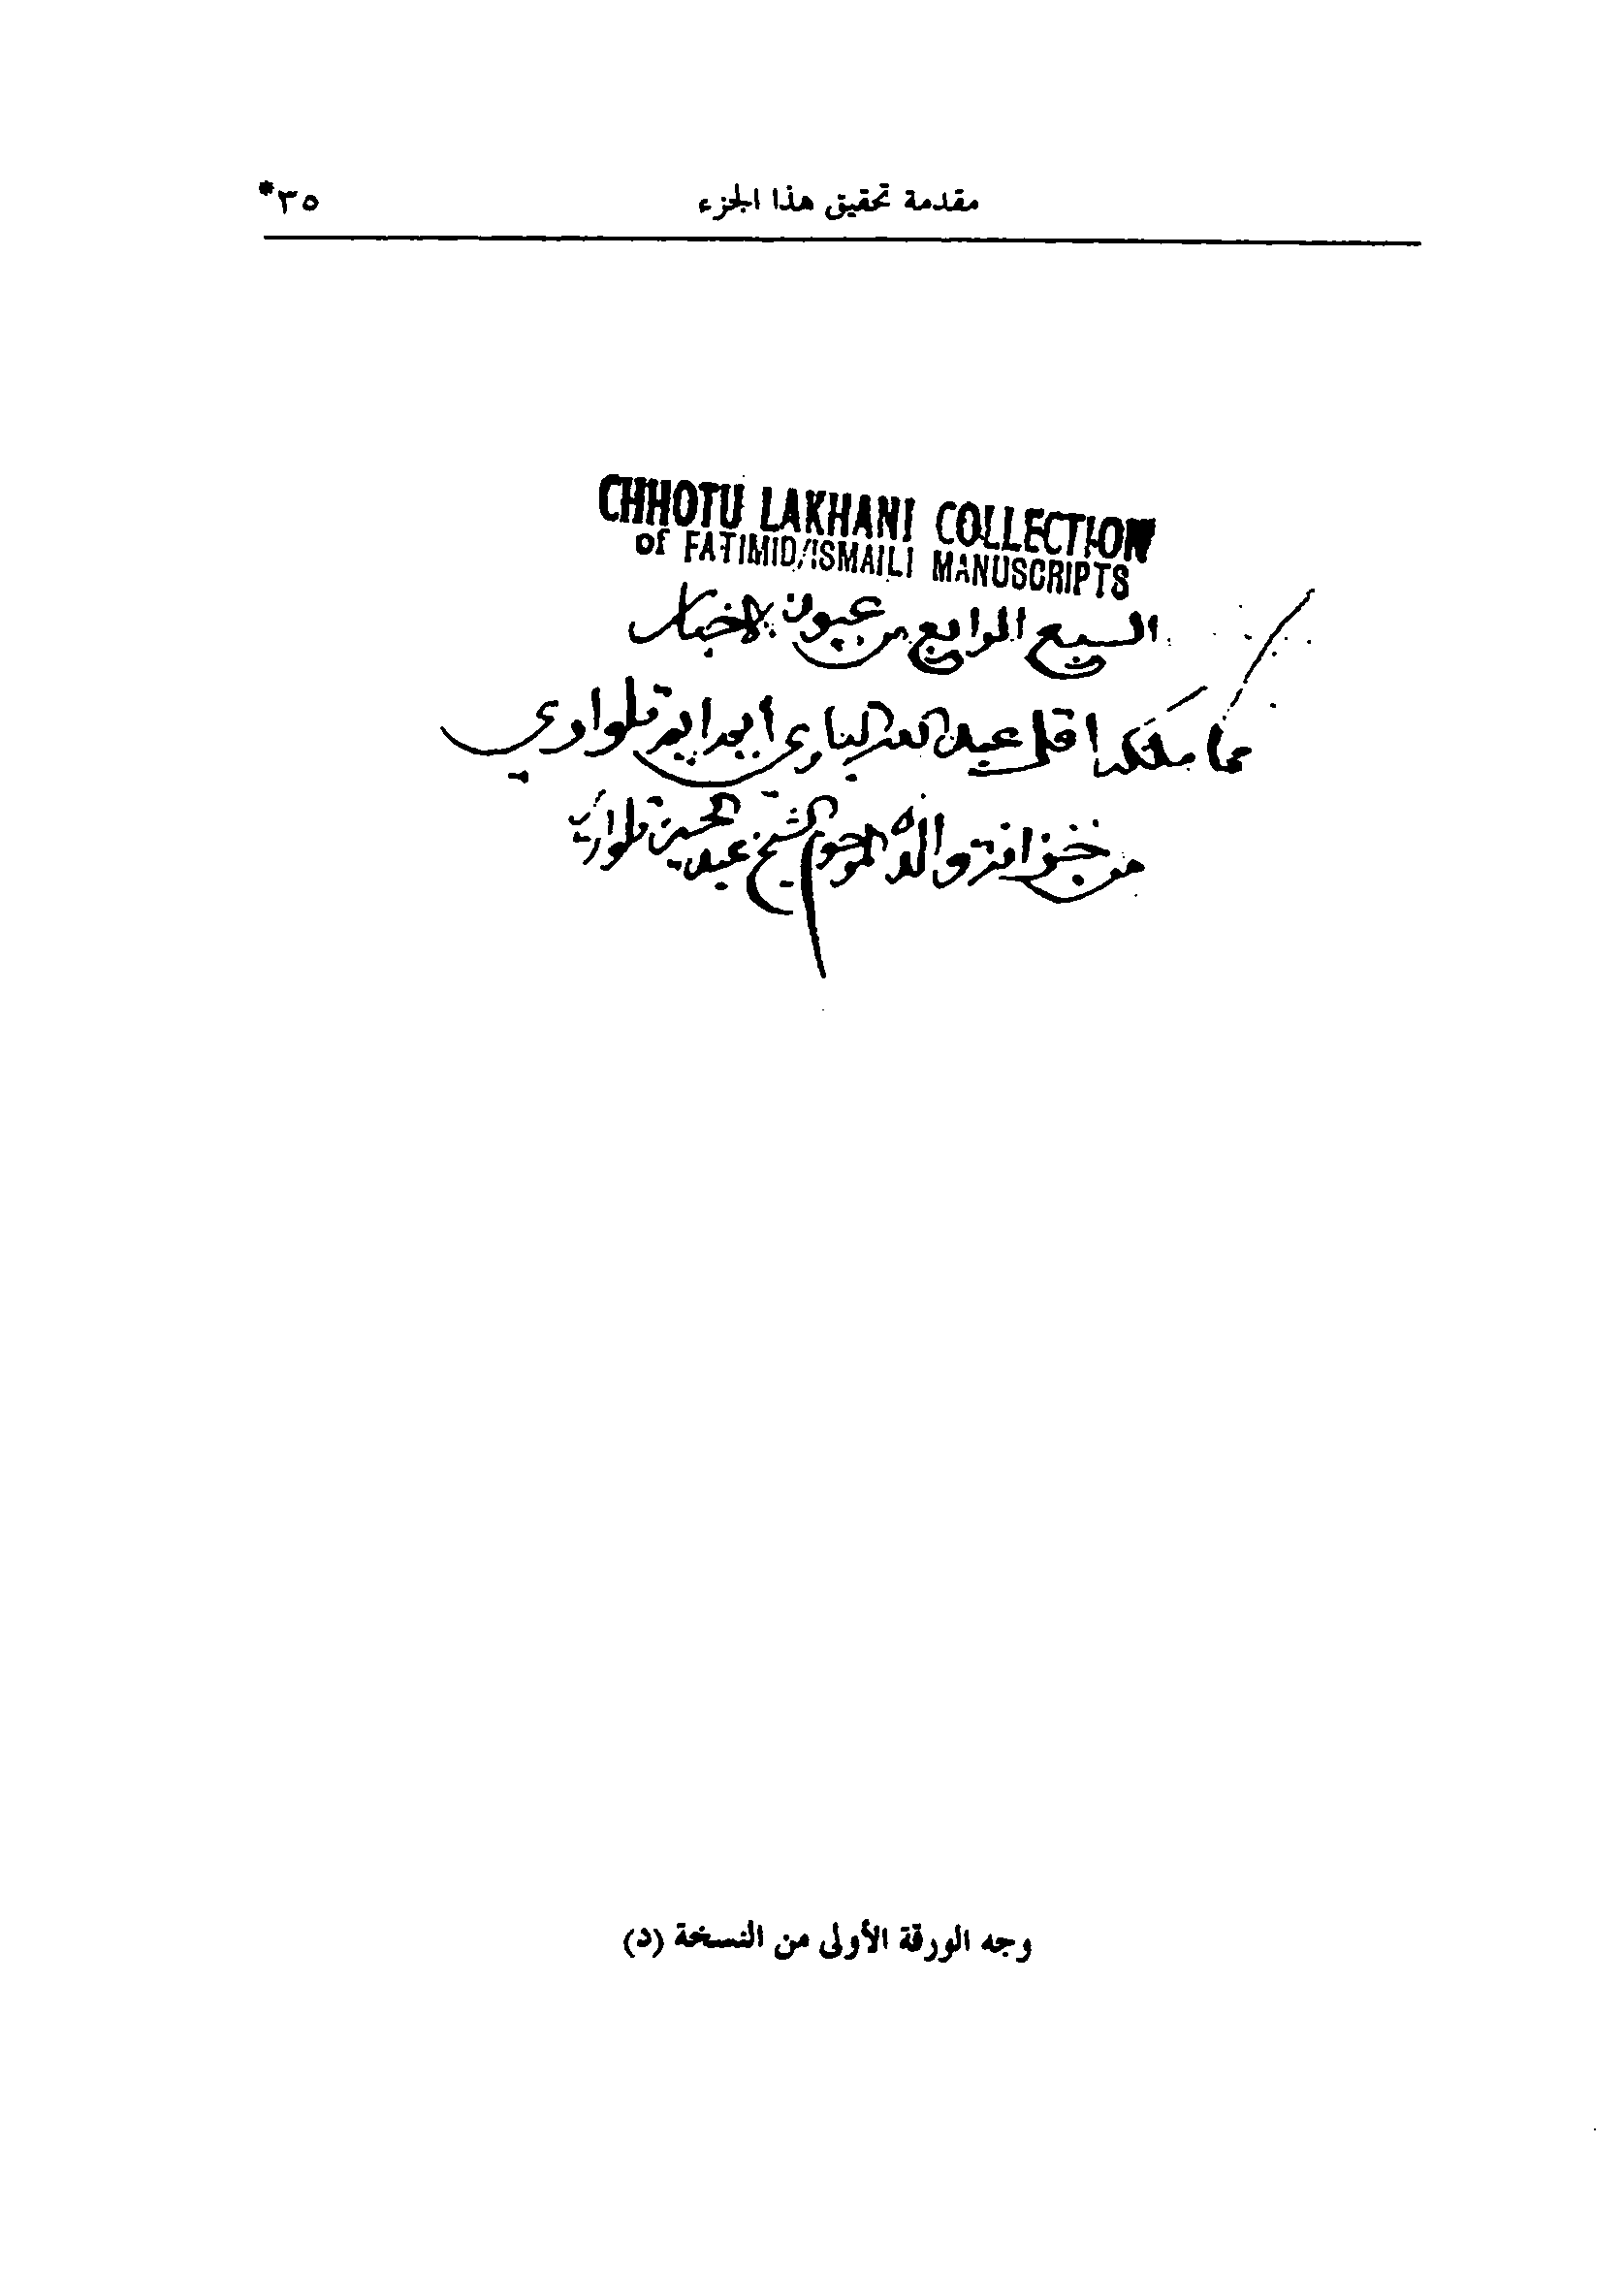 مقدمة تحقيق هذا الجزء ٣٥*
CHHOTU LAKHANI COLLECTION
of FATIMID/ISMAILI MANUSCRIPTS
السبع الرابع من عيون الاخبار
مما ملكه اقل عبيد الباري
من خزانة والده المرحوم الشيخ عبد الحسين
وجه الورقة الأولى من النسخة (د)